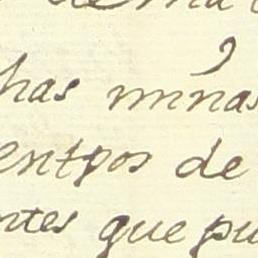 has mrñas
entpos de
ntes que pu